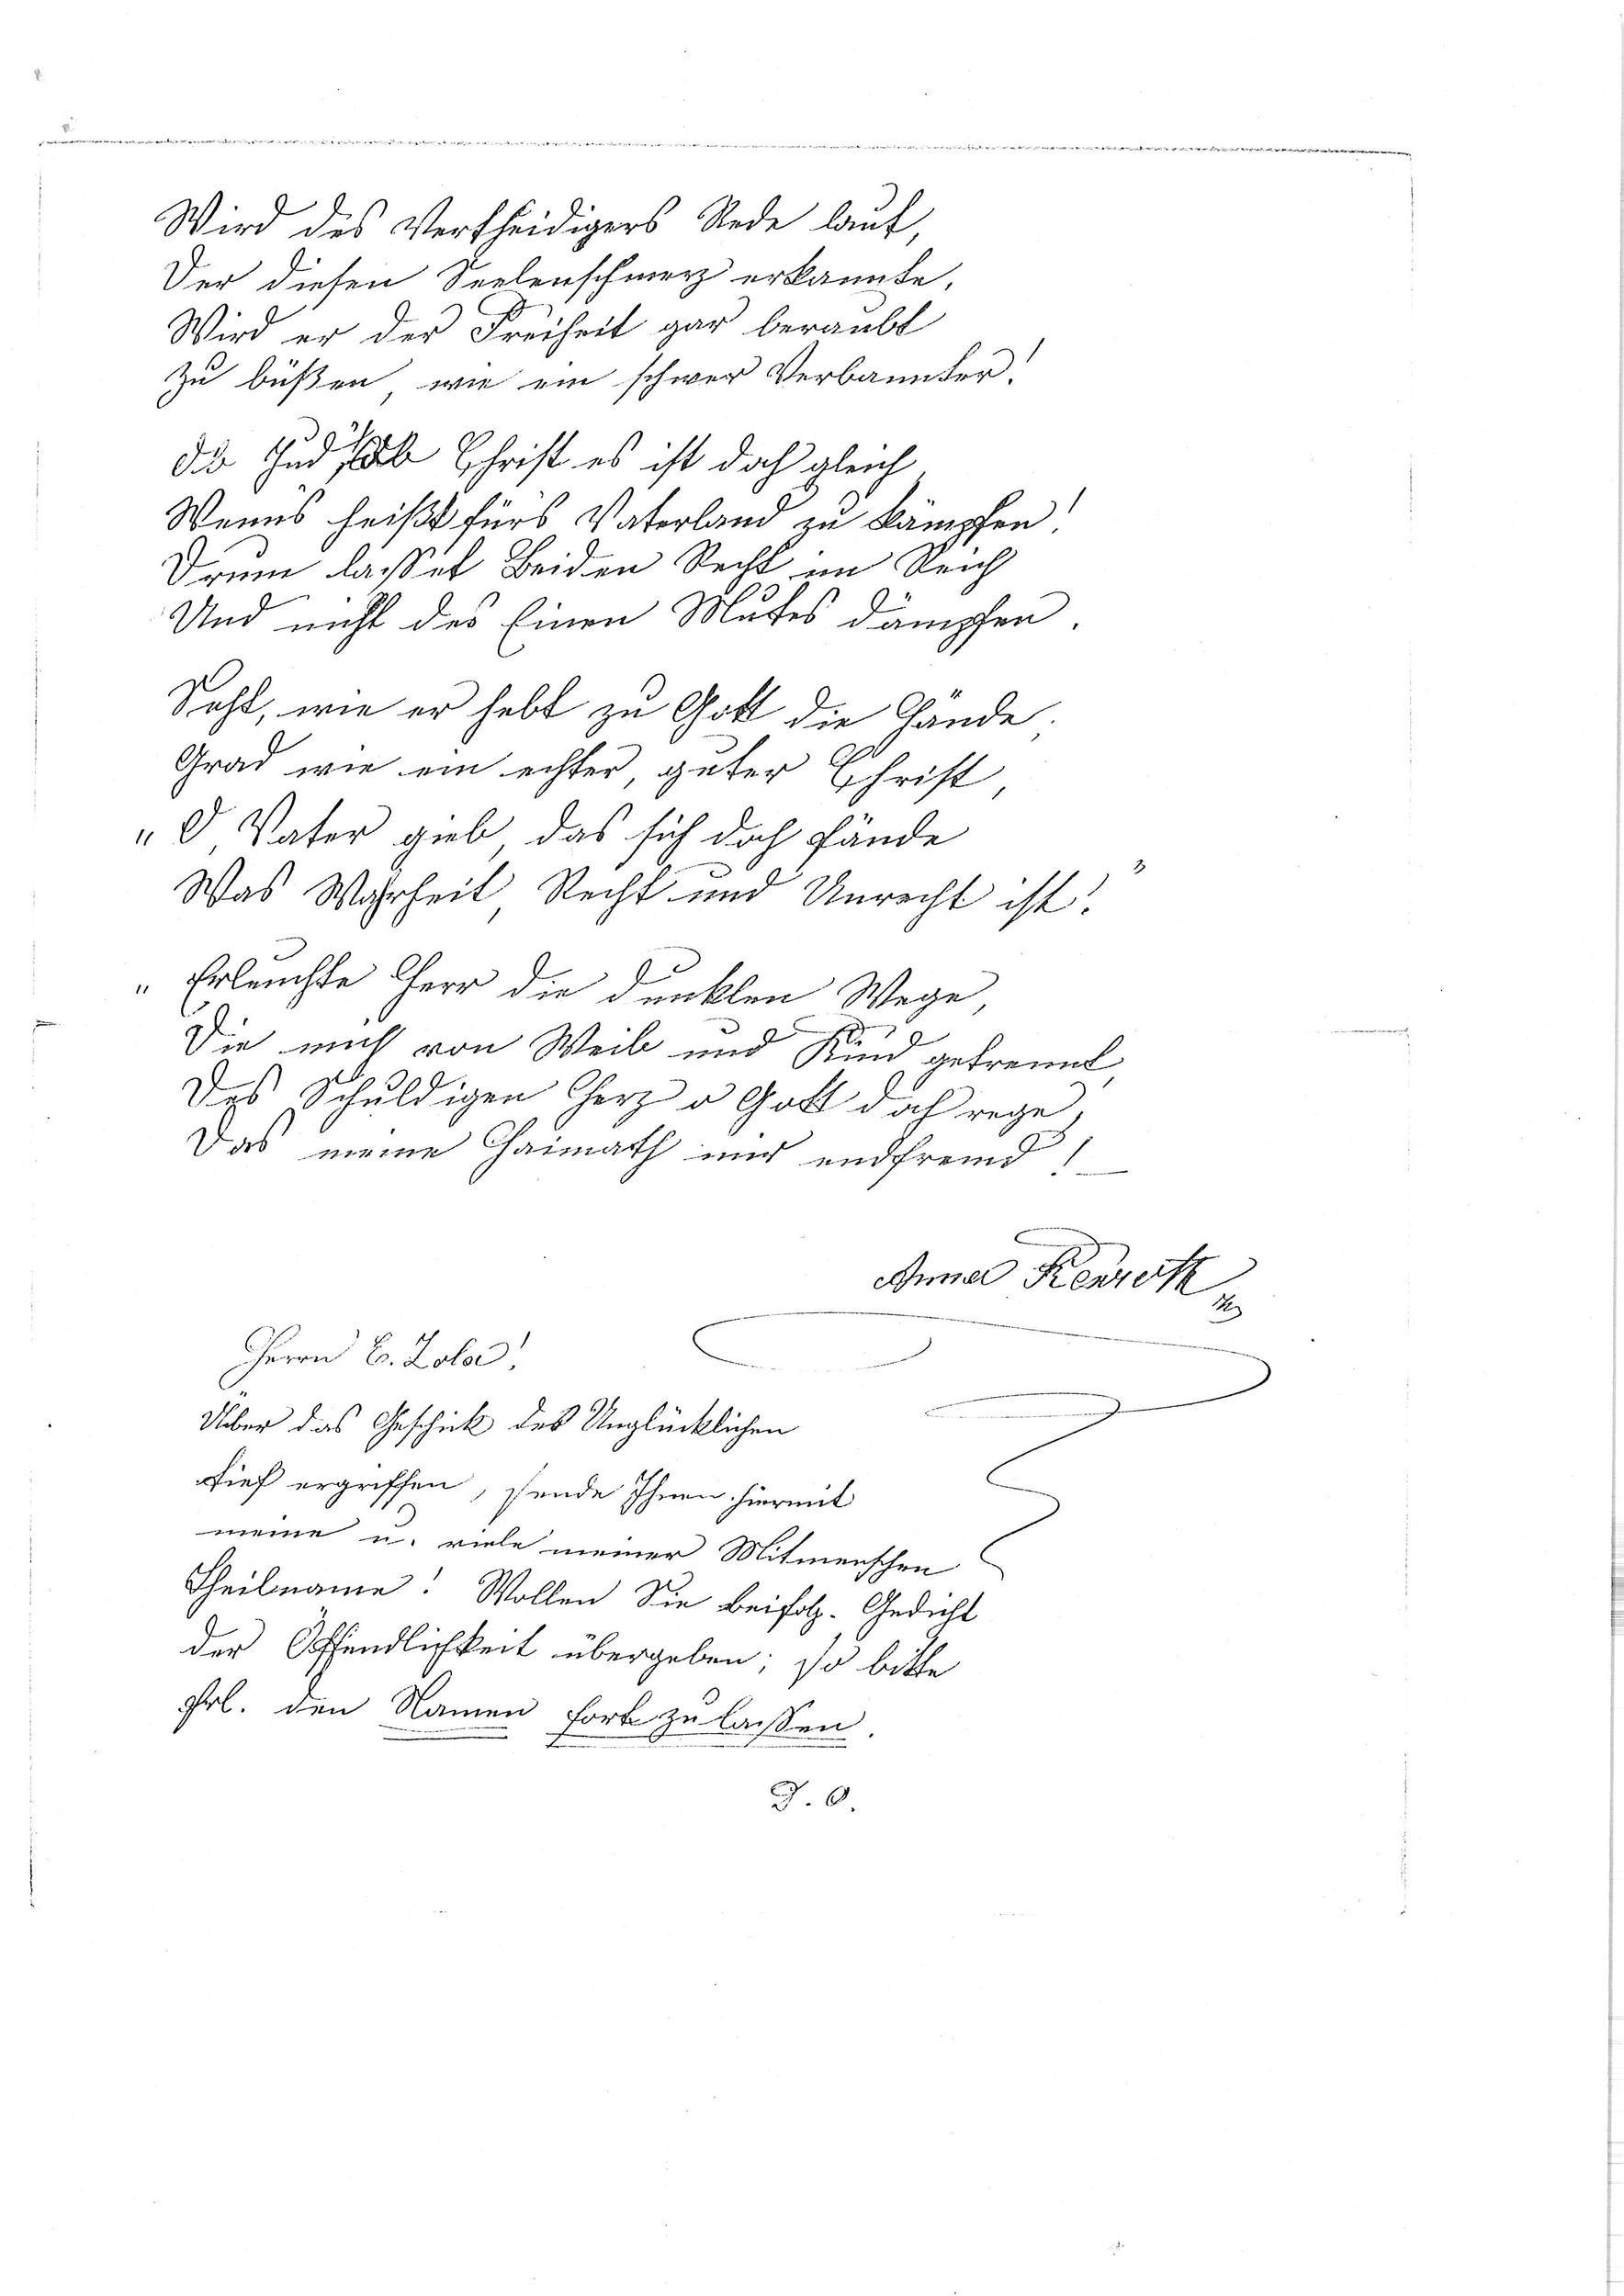 Wird des Vertheidigers Rede laut,
Der diesen Seelenschmerz erkannte,
Wird er der Freiheit gar beraubt
Zu büßen, wie ein schwer Verbannter!
Ob Jud, ob Christ es ist doch gleich,
Wenns heißt fürs Vaterland zu kämpfen!
Drum lasset Beiden Recht im Reich
Und nicht des Einen Mutes dämpfen.
Seht, wie er hebt zu Gott die Hände,
Grad wie ein echter, guter Christ,
„O, Vater gieb, das sich doch fände
Was Wahrheit, Recht und Unrecht ist!"
„Erleuchte Herr die dunklen Wege,
Die mich von Weib und Kind getrennt,
Des Schuldigen Herz o Gott doch rege,
Das meine Haimath mir endfremd!
Anna
Herrn E. Zola!
Über das Geschick des Unglücklichen
tief ergriffen, sende Ihnen hiermit
meine u. viele meiner Mitmenschen
Theilname! Wollen Sie beifolg. Gedicht
der Öffendlichkeit übergeben; so bitte
frl. den Namen fort zu lassen.
D. O.